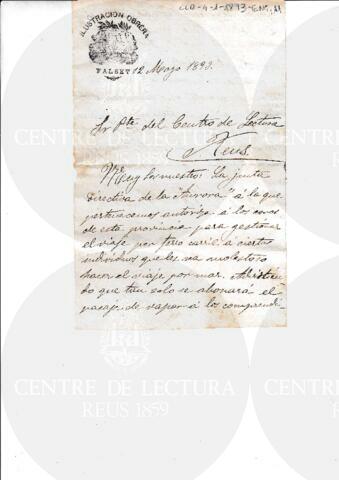 ILUSTRACION OBRERA
FALSET
12 Mayo 1893.
Sr Pte del Centro de Lectura
Reus
Muy Sr nuestro: La junta
Directiva de la "Aurora" á la que
pertenecemos autoriza á los
de esta provincia para gestionar
el viaje por ferro carril á ciertos
individuos que les sea molestoso
hacer el viaje por mar.
do que tan solo se abonará el
pasaje de vapor á los comprendi-
CENTRE DE LECTURA
REUS 1859
CENTRE DE LECTURA
REUS 1859